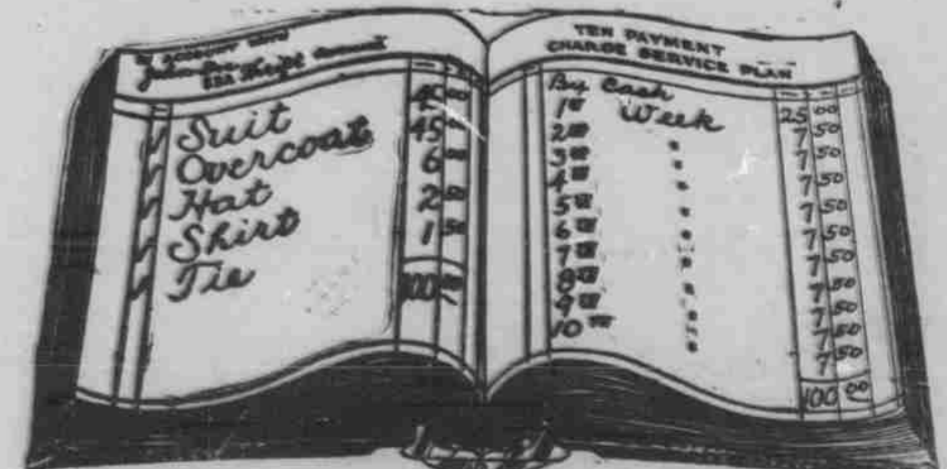 IN ACCOUNT WITH
John Doe Account
Suit 45 00
Overcoat 45 00
Hat 6 00
Shirt 2 50
Tie 1 50
100 00
TEN PAYMENT
CHARGE SERVICE PLAN
By Cash 25 00
1st Week 7 50
2nd " 7 50
3rd " 7 50
4th " 7 50
5th " 7 50
6th " 7 50
7th " 7 50
8th " 7 50
9th " 7 50
10th " 7 50
100 00